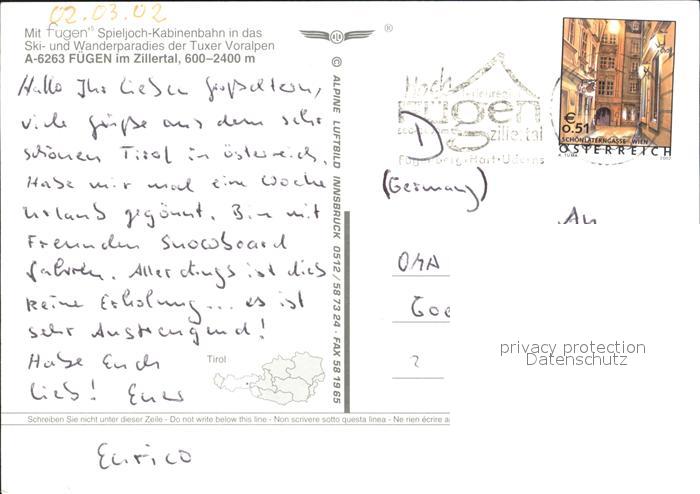 02.03.02
Mit fugen Spieljoch-Kabinenbahn in das
Ski- und Wanderparadies der Tuxer Voralpen
A-6263 FÜGEN im Zillertal, 600–2400 m
®
Hallo Ihr lieben Großeltern,
viele Grüße aus dem sehr
schönen Tirol in Österreich.
Habe mir mal eine Woche
Urlaub gegönnt. Bin mit
Freunden Snowboard
fahren. Allerdings ist dies
keine Erholung... es ist
sehr Anstrengend!
Habe Euch
lieb! Euer
Enrico
Tirol
Schreiben Sie nicht unter dieser Zeile - Do not write below this line - Non scrivere sotto questa linea - Ne rien écrire a
© ALPINE LUFTBILD INNSBRUCK 0512/58 73 24 · FAX 58 19 65
Hoch
fügen
zillertal
Fügen
Hart
Uderns
€
0.51
SCHÖNLATERNGASSE - WIEN
ÖSTERREICH
A. TUMA
2002
D
(Germany)
An
OMA
privacy protection
Datenschutz